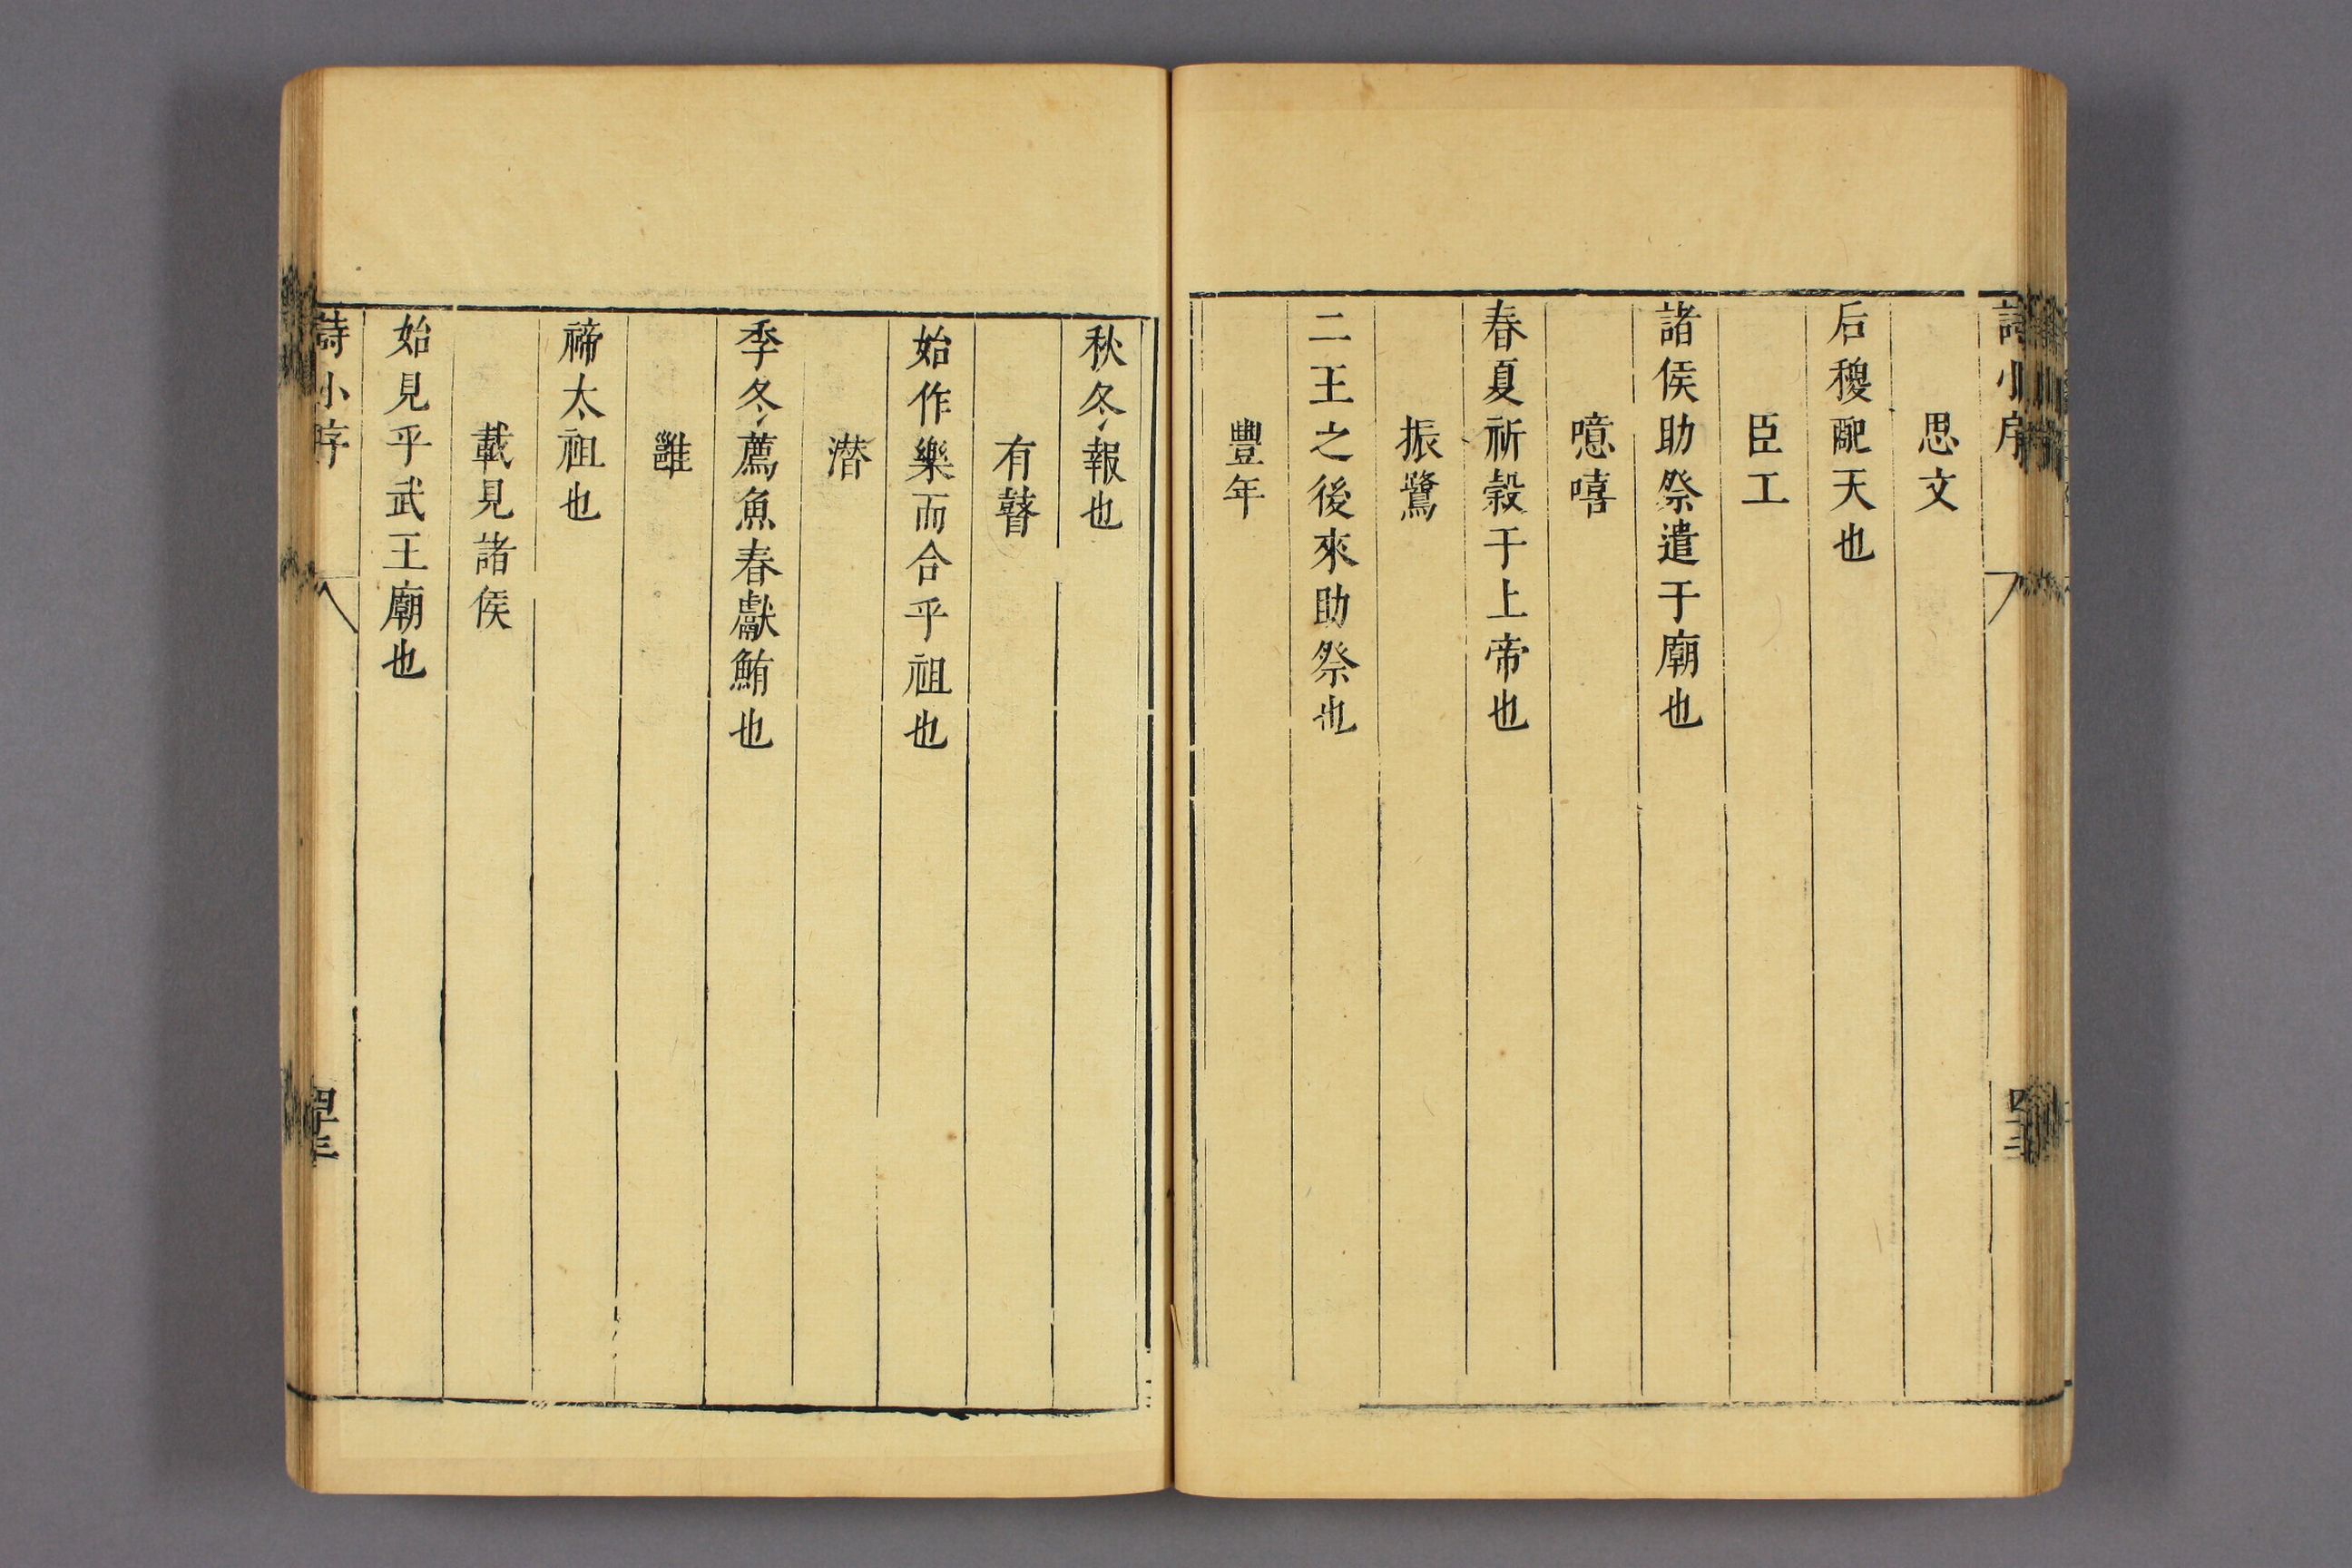 詩小序
思文
后稷配天也
臣工
諸侯助祭遣于廟也
噫嘻
春夏祈榖于上帝也
振鷺
二王之後來助祭也
豐年
秋冬報也
有瞽
始作樂而合乎祖也
潜
季冬薦魚春獻鮪也
雝
禘太祖也
載見諸侯
始見乎武王廟也
詩小序